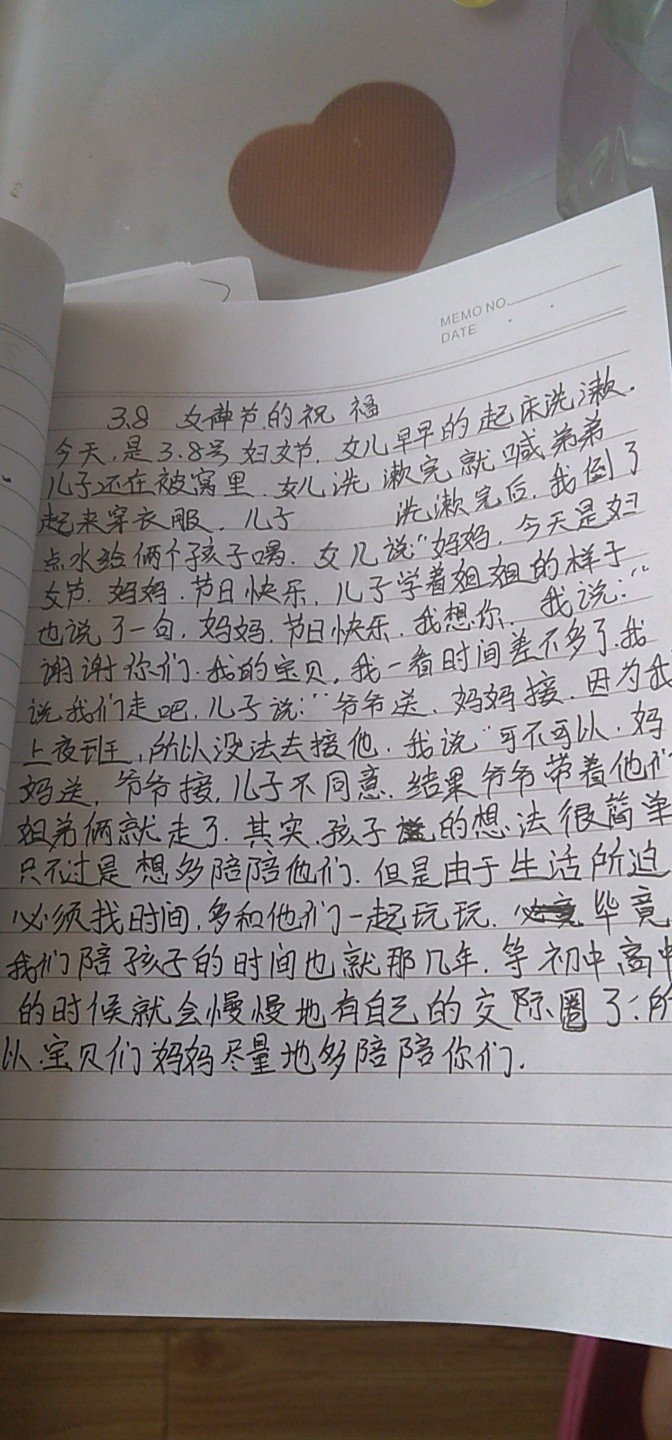 MEMO NO.
DATE
3.8 女神节.的祝福
今天,是3.8号妇女节,女儿早早的起床洗漱.
儿子还在被窝里.女儿洗漱完就喊弟弟
起来穿衣服.儿子 洗漱完后.我倒了
点水给俩个孩子喝.女儿说:"妈妈.今天是妇
女节.妈妈.节日快乐,儿子学着姐姐的样子
也说了一句,妈妈.节日快乐.我想你.我说:"
谢谢你们.我的宝贝,我一看时间差不多了.我
说我们走吧,儿子说:"爷爷送.妈妈接.因为我
上夜班,所以没法去接他.我说"可不可以.妈
妈送,爷爷接,儿子不同意.结果爷爷带着他们
姐弟俩就走了.其实,孩子的想法很简单
只不过是想多陪陪他们.但是由于生活所迫
必须找时间,多和他们一起玩玩.毕竟
我们陪孩子的时间也就那几年.等初中高中
的时候就会慢慢地有自己的交际圈了.所
以.宝贝们妈妈尽量地多陪陪你们.